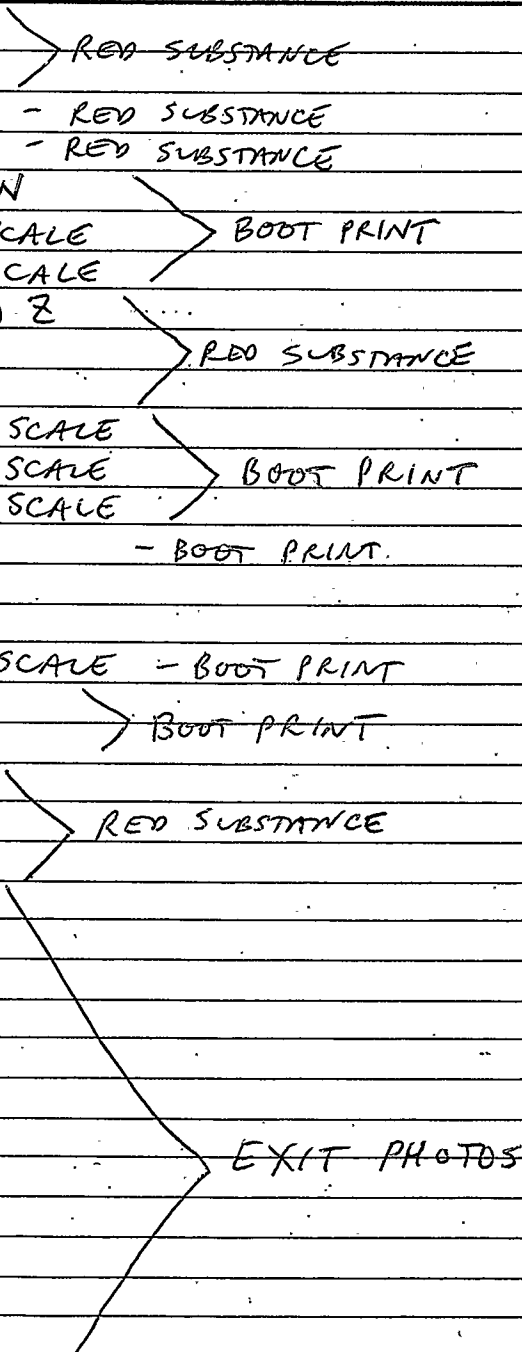 RED SUBSTANCE
- RED SUBSTANCE
- RED SUBSTANCE
N
CALE BOOT PRINT
CALE
Z
RED SUBSTANCE
SCALE
SCALE BOOT PRINT
SCALE
- BOOT PRINT.
SCALE - BOOT PRINT
BOOT PRINT
RED SUBSTANCE
EXIT PHOTOS